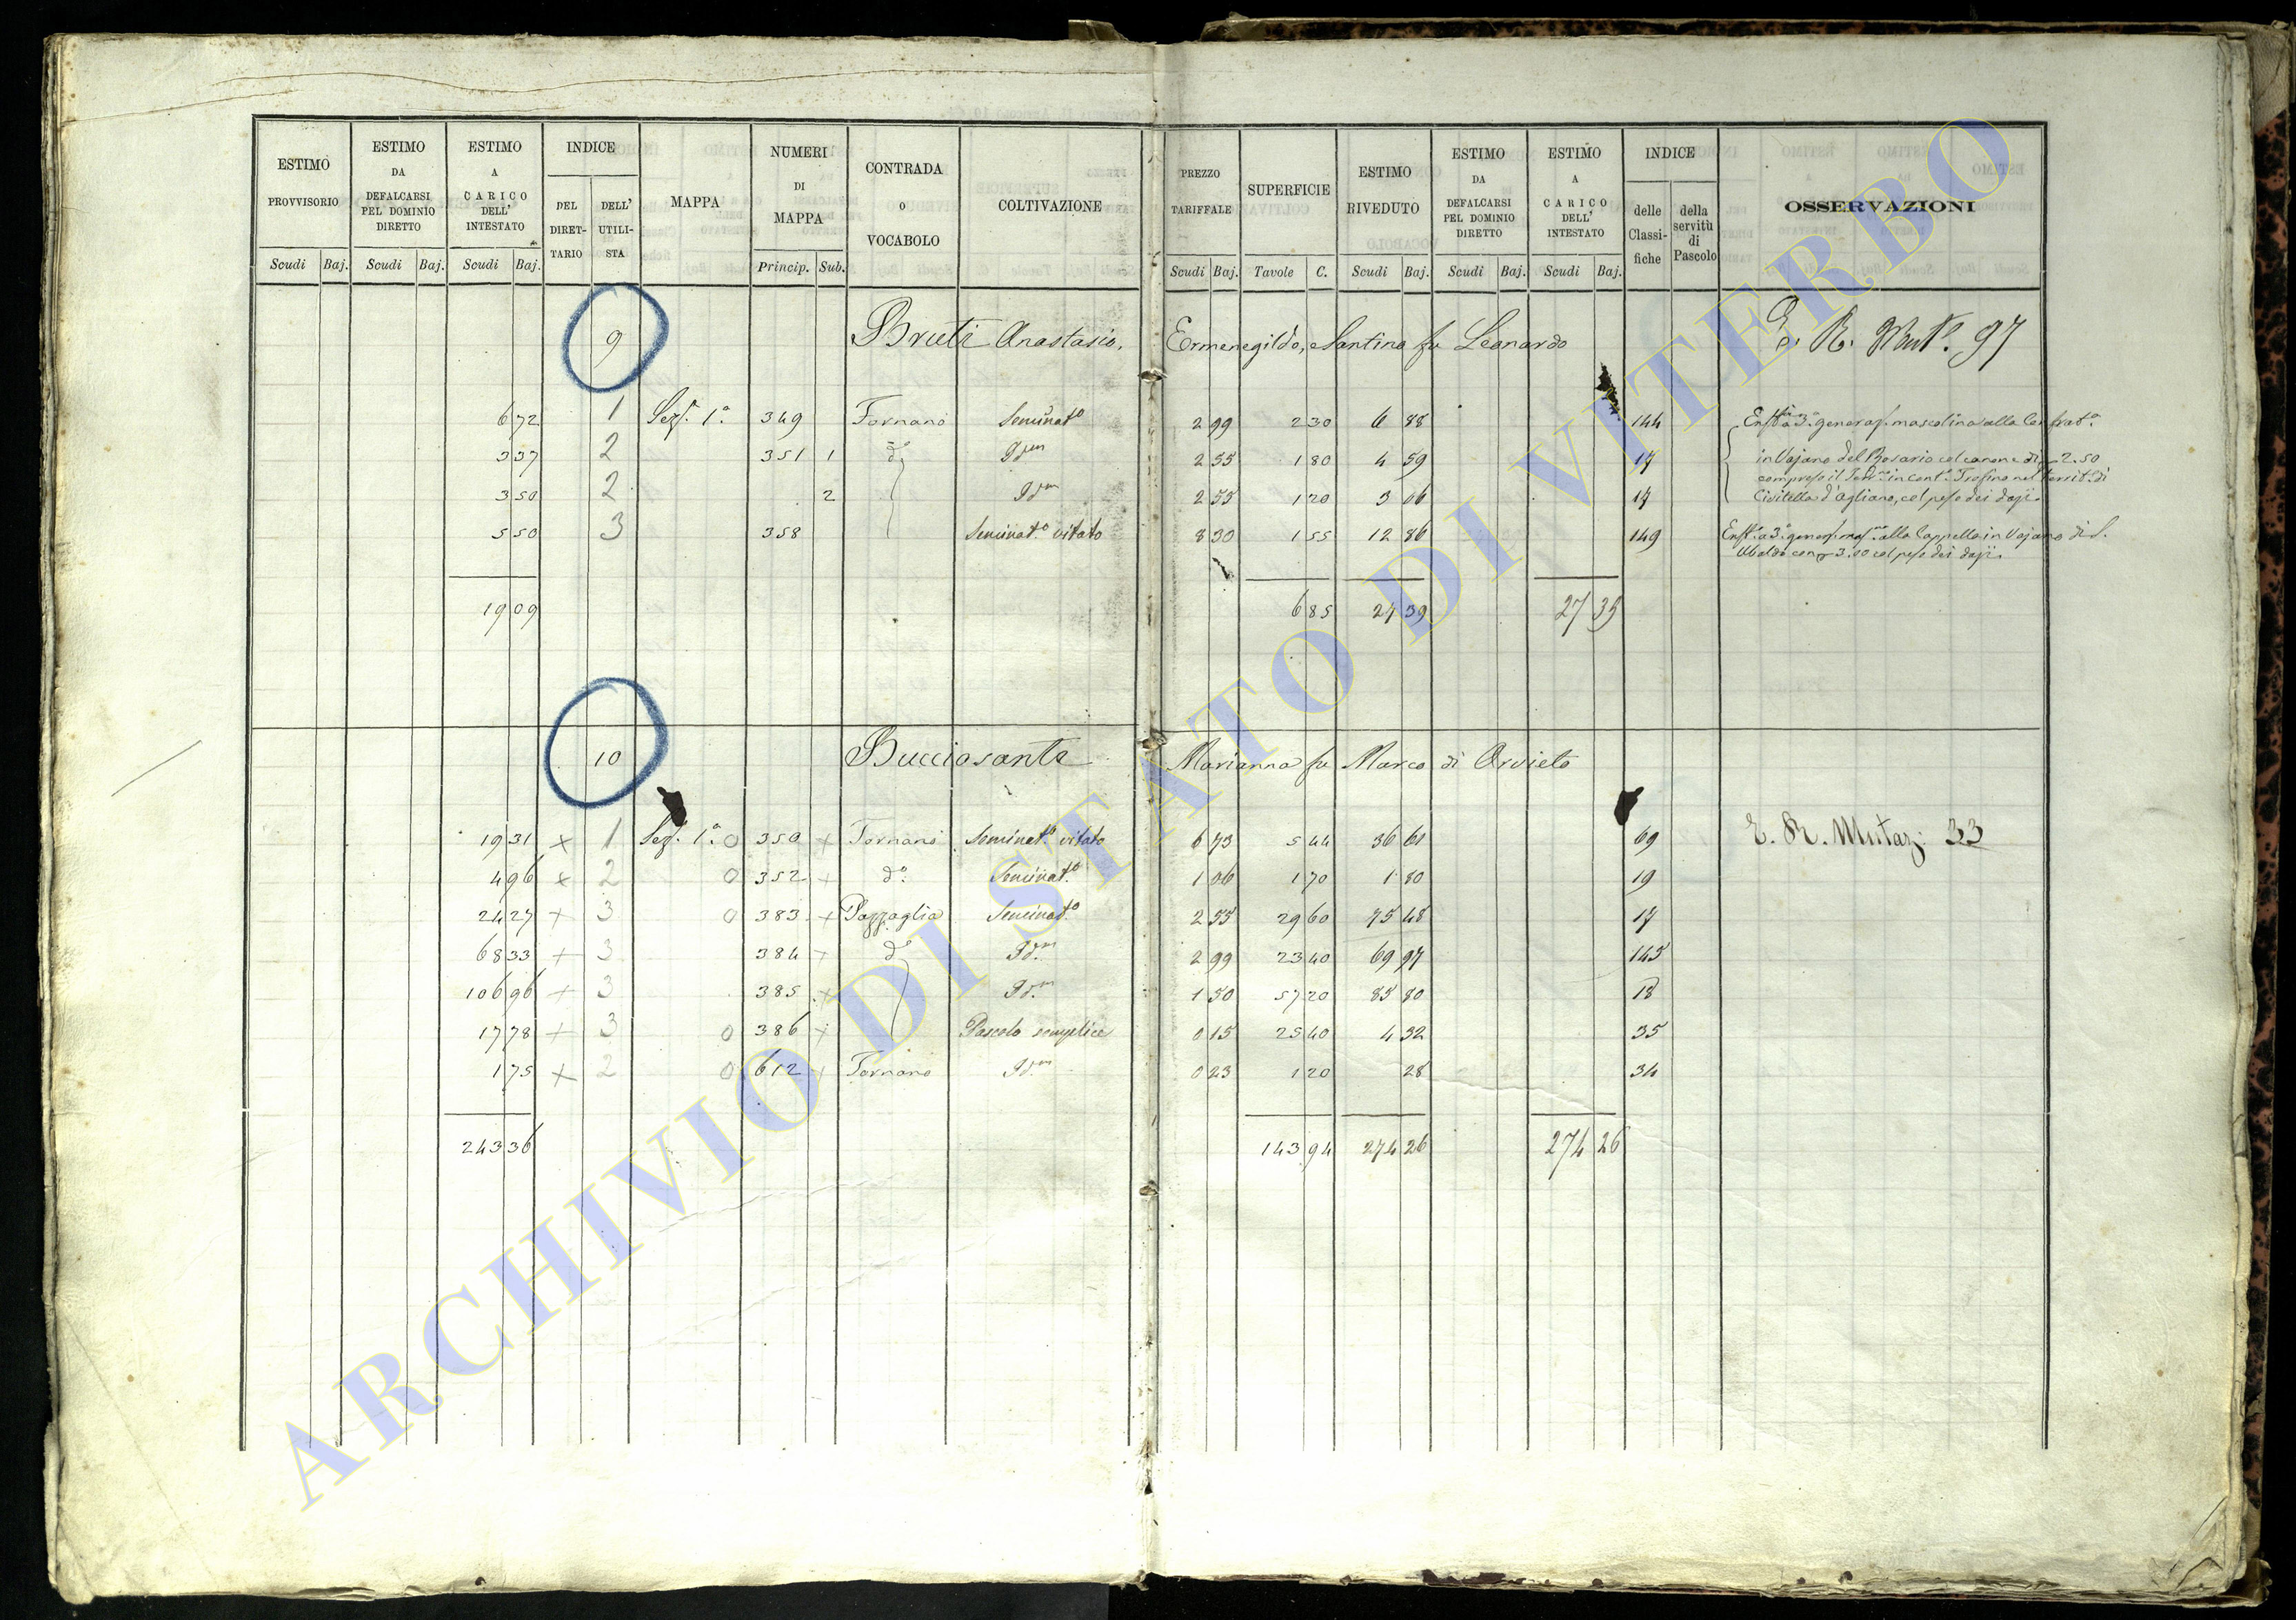 ESTIMO PROVVISORIO | ESTIMO DA DEFALCARSI PEL DOMINIO DIRETTO | ESTIMO A CARICO DELL' INTESTATO | INDICE | MAPPA | NUMERI DI MAPPA | CONTRADA O VOCABOLO | COLTIVAZIONE | PREZZO TARIFFALE | SUPERFICIE | ESTIMO RIVEDUTO | ESTIMO DA DEFALCARSI PEL DOMINIO DIRETTO | ESTIMO A CARICO DELL' INTESTATO | INDICE | OSSERVAZIONI
DEL DIRETTARIO | DELL' UTILISTA | delle Classifiche | della servitù di Pascolo
Scudi | Baj. | Scudi | Baj. | Scudi | Baj. | Princip. | Sub. | Scudi | Baj. | Tavole | C. | Scudi | Baj. | Scudi | Baj. | Scudi | Baj.
9 | Bruti Anastasio, Ermenegildo, Santino fu Leonardo | E. R. 97
6 72 | 1 | Sez. 1ª | 349 | Fornano | Seminatº | 2 99 | 2 30 | 6 88 | 144 | Enfta a 3ª generaz. mascolina alla Confratª
3 37 | 2 | 351 | 1 | dº | Idm | 2 55 | 1 80 | 4 59 | 17 | in Vajano del Rosario col canone di 2.50
3 50 | 2 | 2 | Idm | 2 55 | 1 20 | 3 06 | 17 | compreso il in cont. nel territ. di
Civitella d'Agliano, col peso dei dazi.
5 50 | 3 | 358 | Seminatº vitato | 8 30 | 1 55 | 12 86 | 149 | Enfta a 3ª alla Cappella in Vajano di S.
Ubaldo 3.00 col peso dei dazj.
19 09 | 6 85 | 27 39 | 27 39
10 | Bucciosanti Marianna fu Marco di Orvieto
19 31 | x | 1 | Sez. 1ª | 0 | 350 | + | Fornano | Seminatº vitato | 6 73 | 5 44 | 36 61 | 69 | E. R. Mutaz: 33
4 96 | x | 2 | 0 | 352 | + | dº | Seminatº | 1 06 | 1 70 | 1 80 | 19
24 27 | + | 3 | 0 | 383 | + | Pazzaglia | Seminatº | 2 55 | 29 60 | 75 48 | 17
68 33 | + | 3 | 384 | + | dº | Idm | 2 99 | 23 40 | 69 97 | 145
106 96 | + | 3 | 385 | + | Idm | 1 50 | 57 20 | 85 80 | 18
17 78 | + | 3 | 0 | 386 | + | Pascolo semplice | 0 15 | 25 40 | 4 32 | 35
1 75 | x | 2 | 0 | 612 | + | Fornano | Idm | 0 23 | 1 20 | 28 | 34
243 36 | 143 94 | 274 26 | 274 26
ARCHIVIO DI STATO DI VITERBO